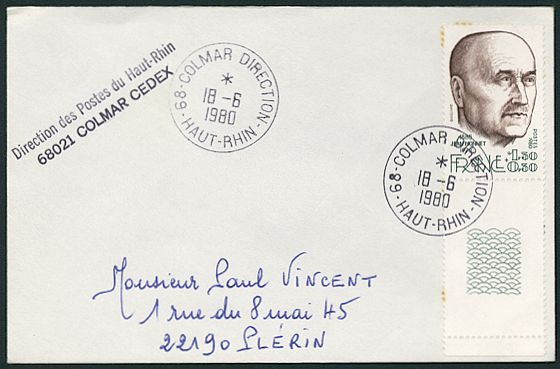 Direction des Postes du Haut-Rhin
68021 COLMAR CEDEX
68-COLMAR DIRECTION
*
18-6
1980
-HAUT-RHIN-
POSTES 1980
FRANCE
+1.30
0.30
68-COLMAR DIRECTION
*
18-6
1980
-HAUT-RHIN-
Monsieur Paul VINCENT
1 rue du 8 mai 45
22190 PLÉRIN